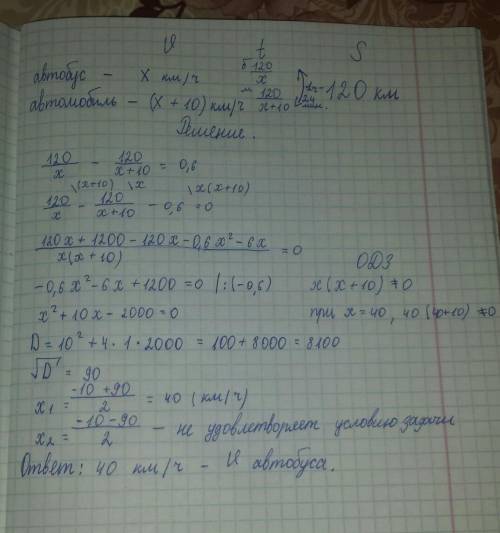 V t S
автобус – x км/ч б 120/x
автомобиль – (x + 10) км/ч м 120/x+10 24 мин. 120 км
Решение.
120/x - 120/x+10 = 0,6
\(x+10) \x \x(x+10)
120/x - 120/x+10 - 0,6 = 0
120x + 1200 - 120x - 0,6x² - 6x / x(x+10) = 0
ОДЗ
-0,6x² - 6x + 1200 = 0 |:(-0,6) x(x+10) ≠ 0
x² + 10x - 2000 = 0 при x = 40, 40(40+10) ≠ 0
D = 10² + 4 · 1 · 2000 = 100 + 8000 = 8100
√D = 90
x1 = -10 + 90 / 2 = 40 (км/ч)
x2 = -10 - 90 / 2 – не удовлетворяет условию задачи
Ответ: 40 км/ч – V автобуса.